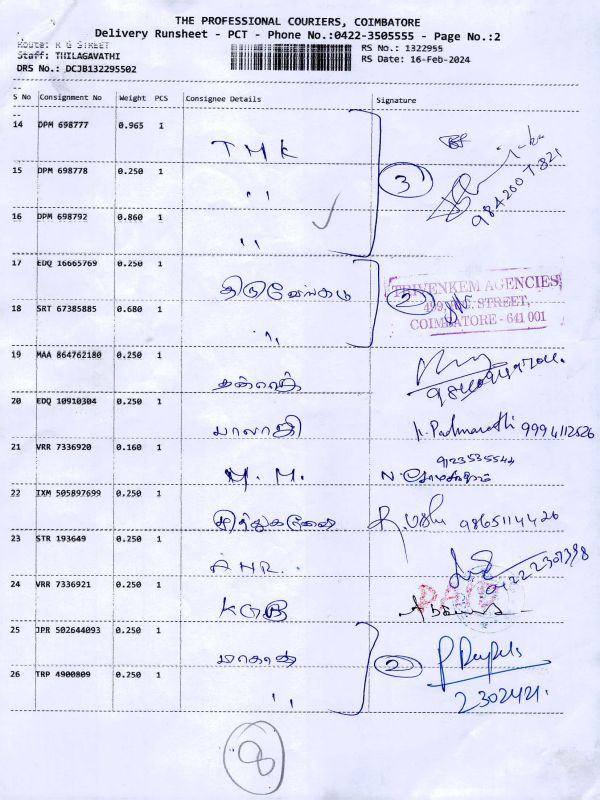 THE PROFESSIONAL COURIERS, COIMBATORE
Delivery Runsheet - PCT - Phone No.:0422-3505555 - Page No.:2
Route: R G STREET
RS No.: 1322955
Staff: THILAGAVATHI
RS Date: 16-Feb-2024
DRS No.: DCJB132295502
S No Consignment No Weight PCS Consignee Details Signature
14 DPM 698777 0.965 1
TMK
15 DPM 698778 0.250 1
" 3
16 DPM 698792 0.860 1
"
17 EDQ 16665769 0.250 1
திருவேங்கடம் 2
TRIVENKEM AGENCIES,
18 SRT 67385885 0.680 1
"
COIMBATORE - 641 001
19 MAA 864762180 0.250 1
20 EDQ 10910304 0.250 1
பாலாஜி 9994112626
21 VRR 7336920 0.160 1
M. M. 9123535544
22 IXM 505897699 0.250 1
R. Usha 9865114426
23 STR 193649 0.250 1
AHR..
24 VRR 7336921 0.250 1
PAID
25 JPR 502644093 0.250 1
2
26 TRP 4900809 0.250 1
" 2302421.
8